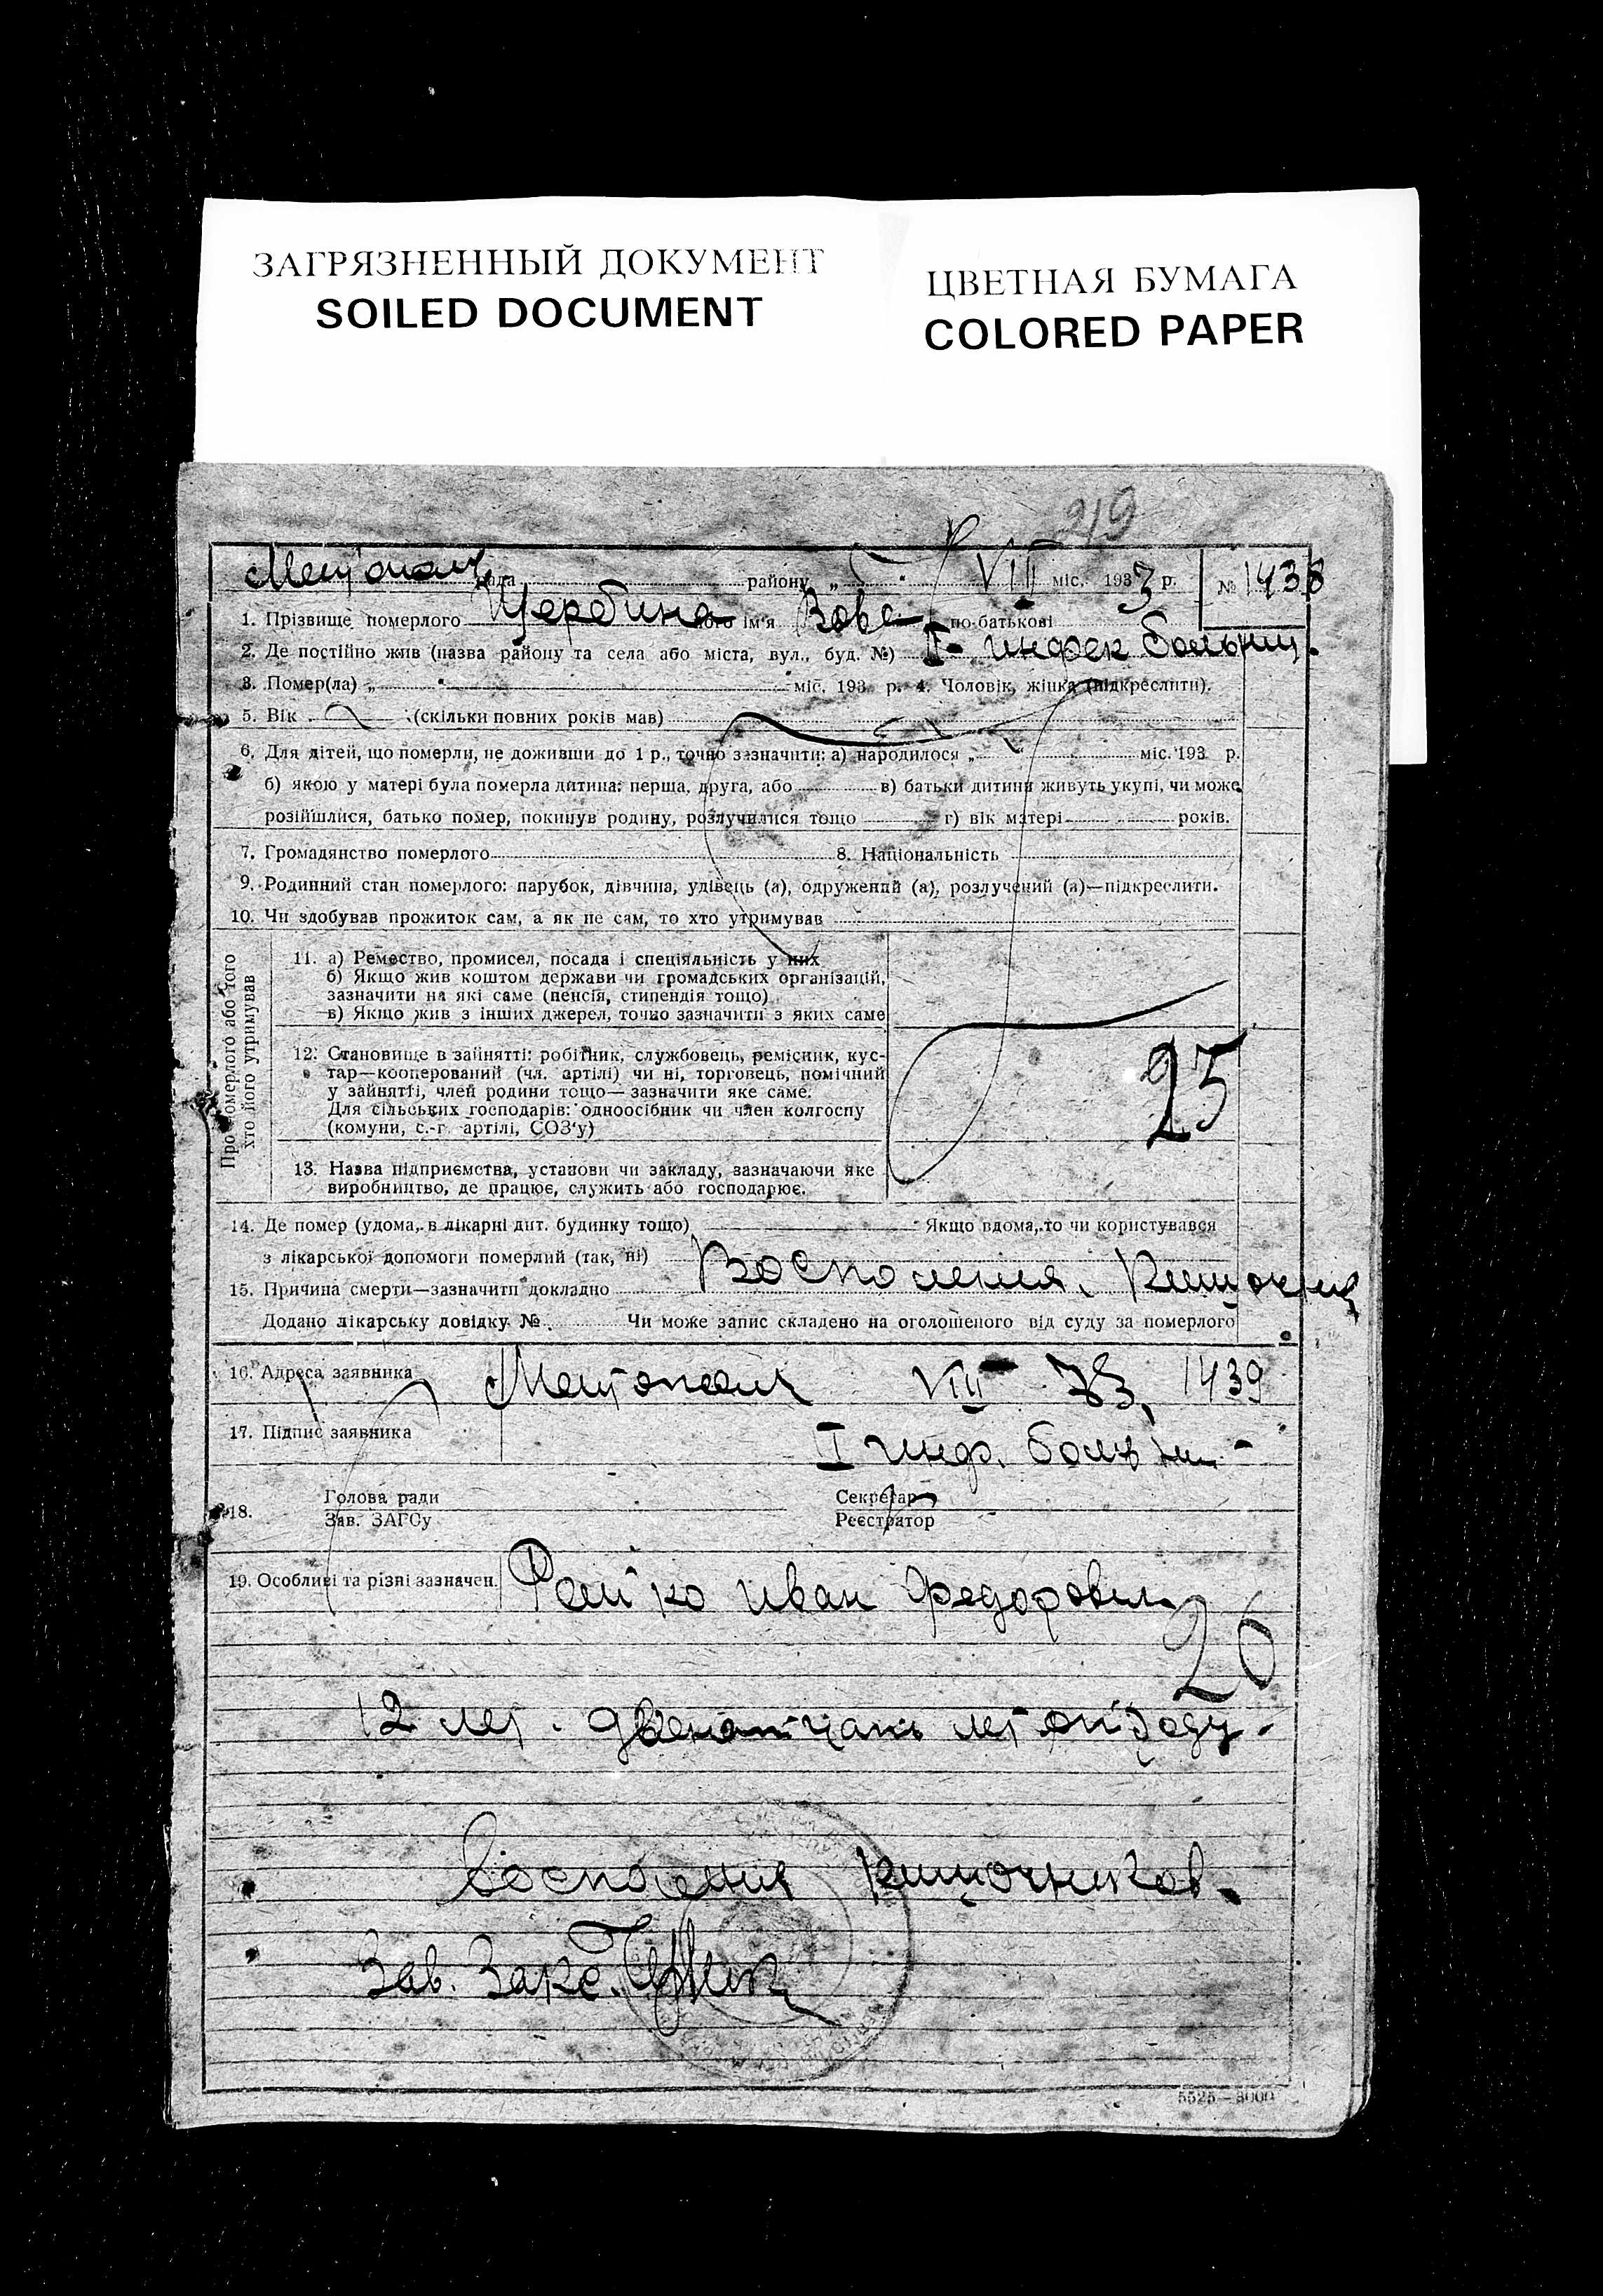 ЗАГРЯЗНЕННЫЙ ДОКУМЕНТ
SOILED DOCUMENT
ЦВЕТНАЯ БУМАГА
COLORED PAPER
219
рада району „ “ VIII міс. 1933 р. № 1438
1. Прізвище померлого Щербина його ім'я Вова по-батькові
2. Де постійно жив (назва району та села або міста, вул., буд. №) инфек больниц.
3. Помер(ла) „ “ міс. 193 р. 4. Чоловік, жінка (підкреслити).
5. Вік (скільки повних років мав)
6. Для дітей, що померли, не доживши до 1 р., точно зазначити: а) народилося „ “ міс. 193 р.
б) якою у матері була померла дитина: перша, друга, або в) батьки дитини живуть укупі, чи може
розійшлися, батько помер, покинув родину, розлучилися тощо г) вік матері років.
7. Громадянство померлого 8. Національність
9. Родинний стан померлого: парубок, дівчина, удівець (а), одружений (а), розлучений (а)—підкреслити.
10. Чи здобував прожиток сам, а як не сам, то хто утримував
Про померлого або того
хто його утримував
11. а) Ремество, промисел, посада і спеціяльність у них
б) Якщо жив коштом держави чи громадських організацій,
зазначити на які саме (пенсія, стипендія тощо)
в) Якщо жив з інших джерел, точно зазначити з яких саме
12. Становище в зайнятті: робітник, службовець, ремісник, кус-
тар—кооперований (чл. артілі) чи ні, торговець, помічний
у зайнятті, член родини тощо—зазначити яке саме.
Для сільських господарів: одноосібник чи член колгоспу
(комуни, с.-г. артілі, СОЗ'у)
25
13. Назва підприємства, установи чи закладу, зазначаючи яке
виробництво, де працює, служить або господарює.
14. Де помер (удома, в лікарні дит. будинку тощо) Якщо вдома, то чи користувався
з лікарської допомоги померлий (так, ні)
15. Причина смерти—зазначити докладно Восполения
Додано лікарську довідку № Чи може запис складено на оголошеного від суду за померлого
16. Адреса заявника VIII 33 1439
17. Підпис заявника I инф.
18. Голова ради Секретар
Зав. ЗАГСу Реєстратор
19. Особливі та різні зазначен. Иван Федорович
26
12 лет. лет
Восполения кишочников.
Зав. Загс.
5525—8000